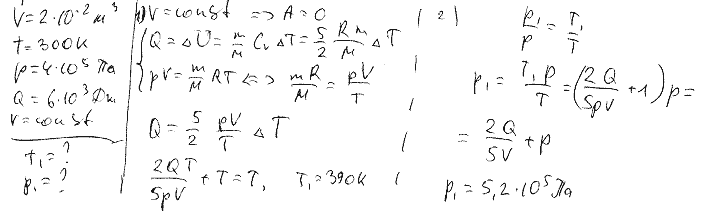 V = 2·10⁻² м³
t = 300К
p = 4·10⁵ Па
Q = 6·10³ Дж
V = const
t₁ = ?
p₁ = ?
1) V = const => A = 0
Q = ΔU = m/M Cᵥ ΔT = 5/2 Rm/M ΔT
pV = m/M RT <=> mR/M = pV/T
Q = 5/2 pV/T ΔT
2QT/5pV + T = T₁ T₁ = 390К
2)
p₁/p = T₁/T
p₁ = T₁p/T = (2Q/5pV + 1) p =
= 2Q/5V + p
p₁ = 5,2·10⁵ Па